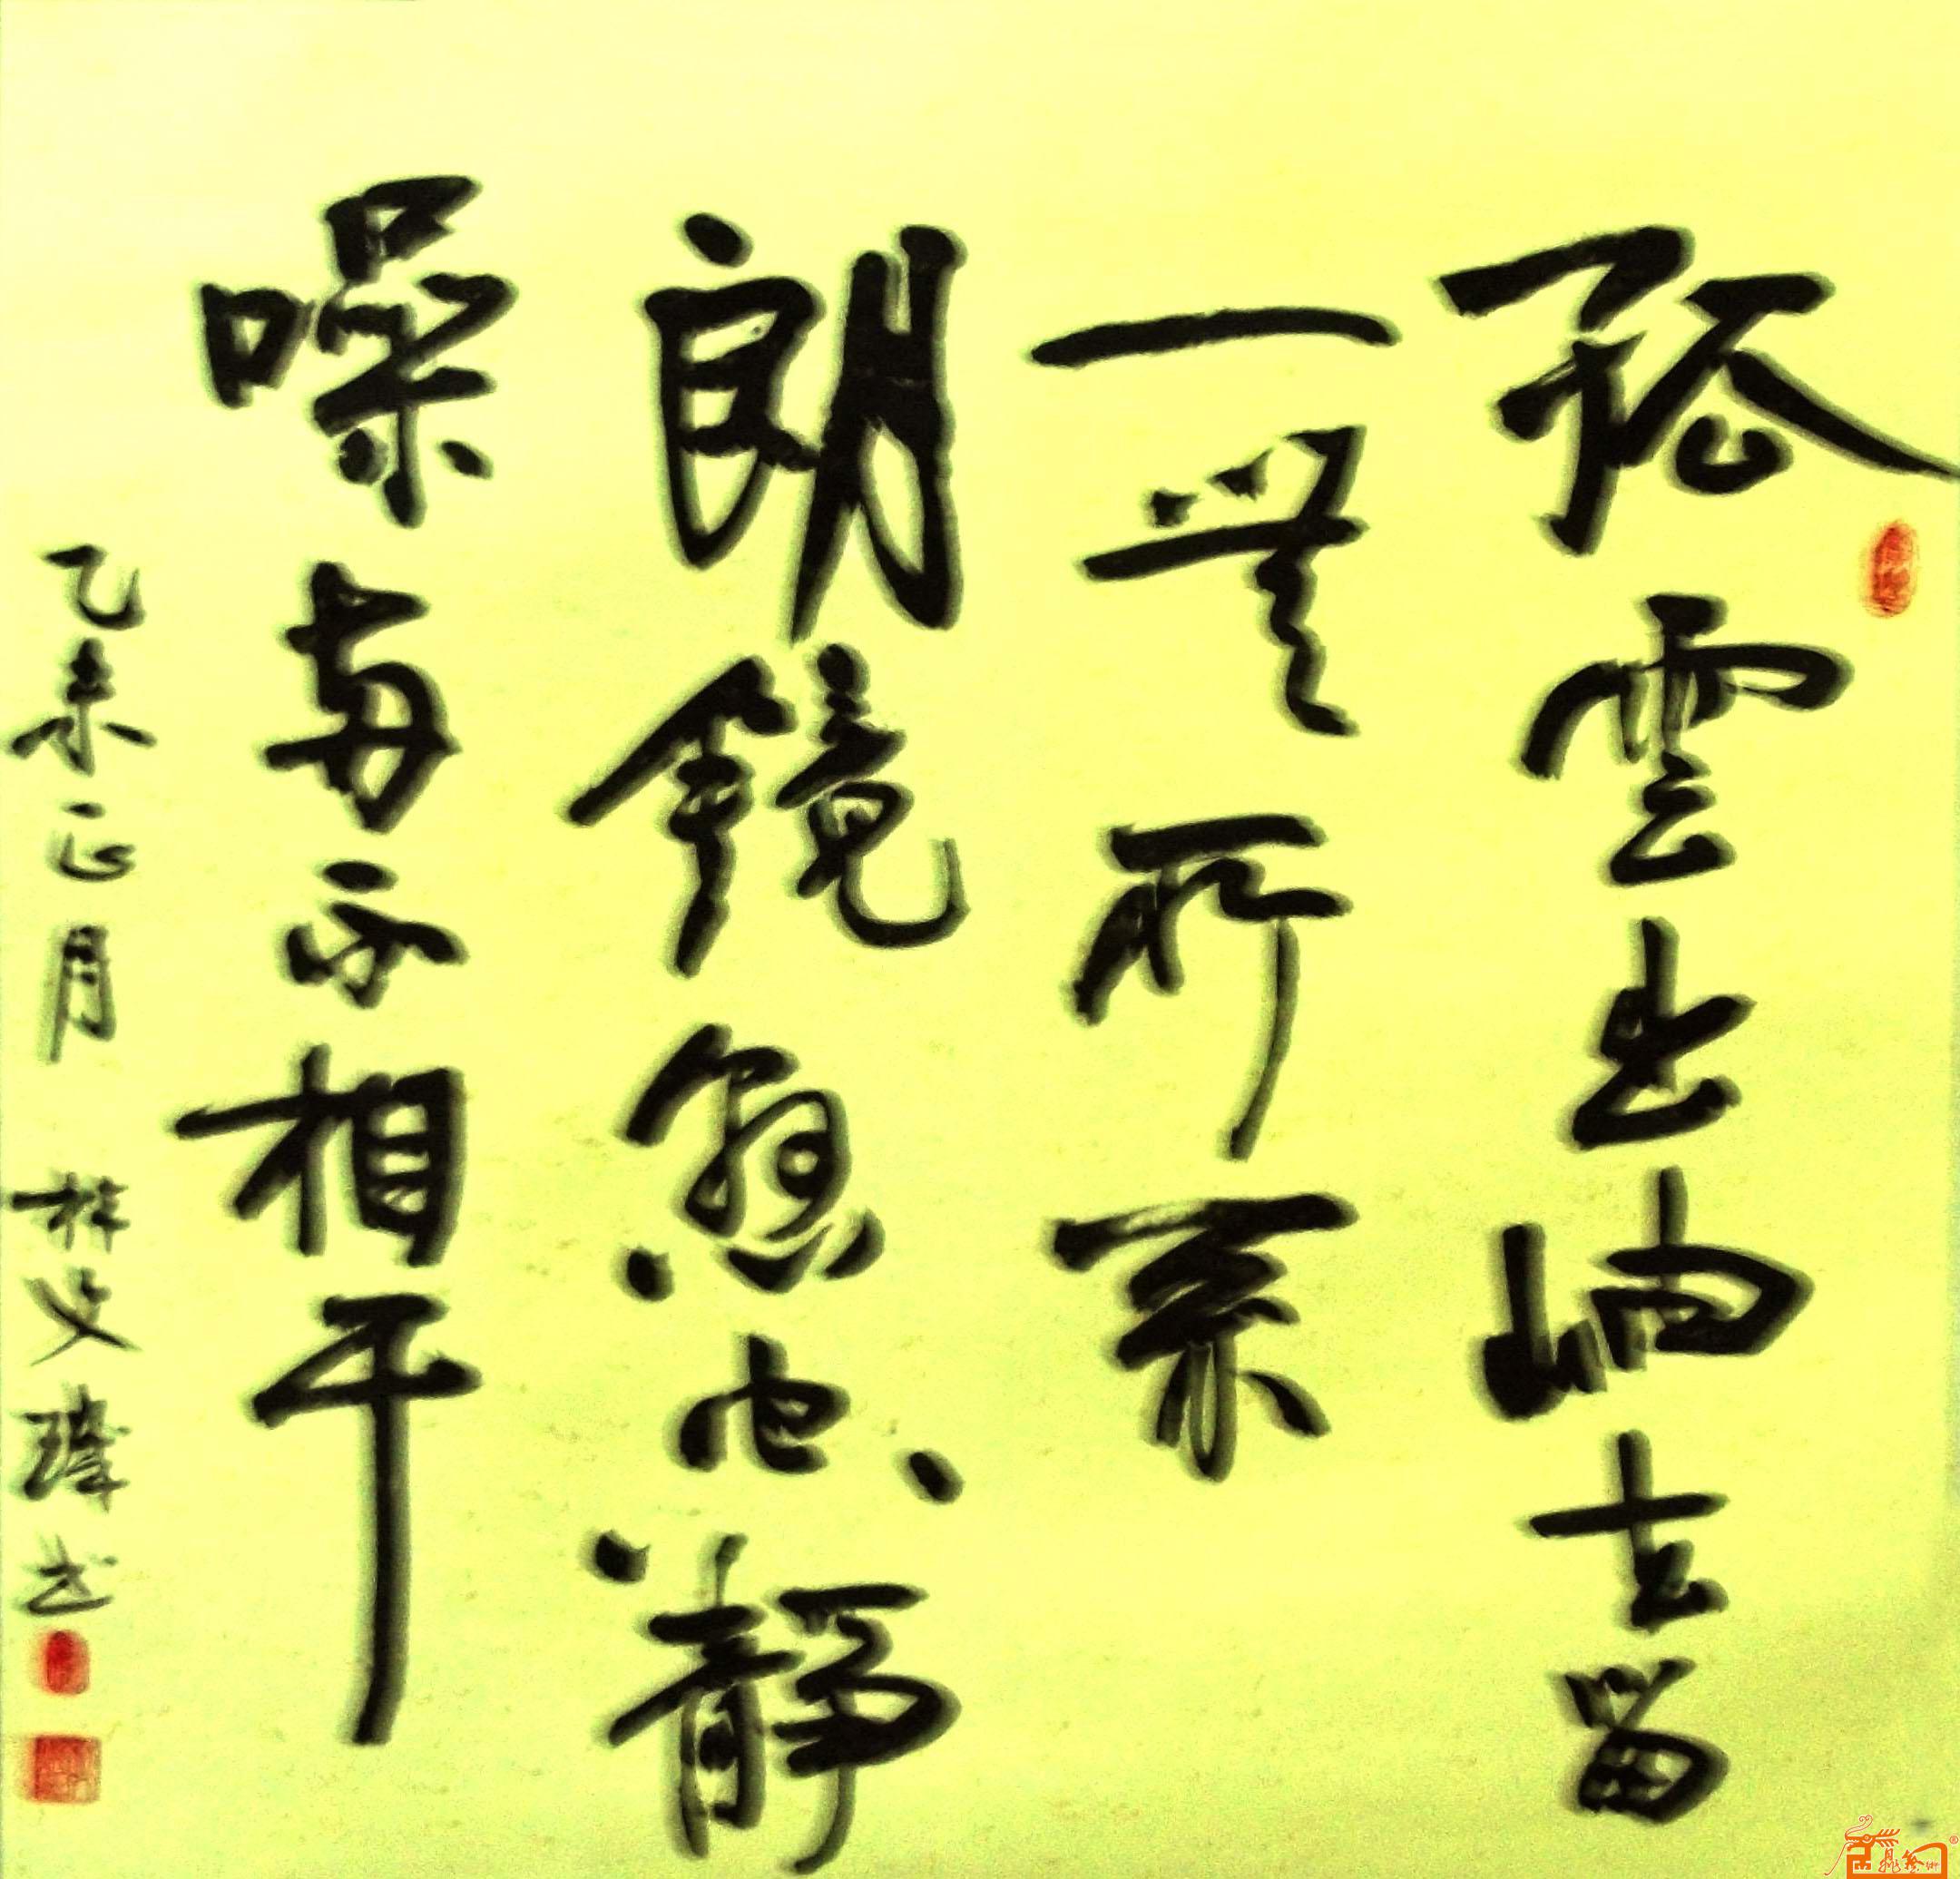 孤雲出岫去留
一無所系
朗鏡懸空静
噪兩不相干
乙未正月 梓父 書